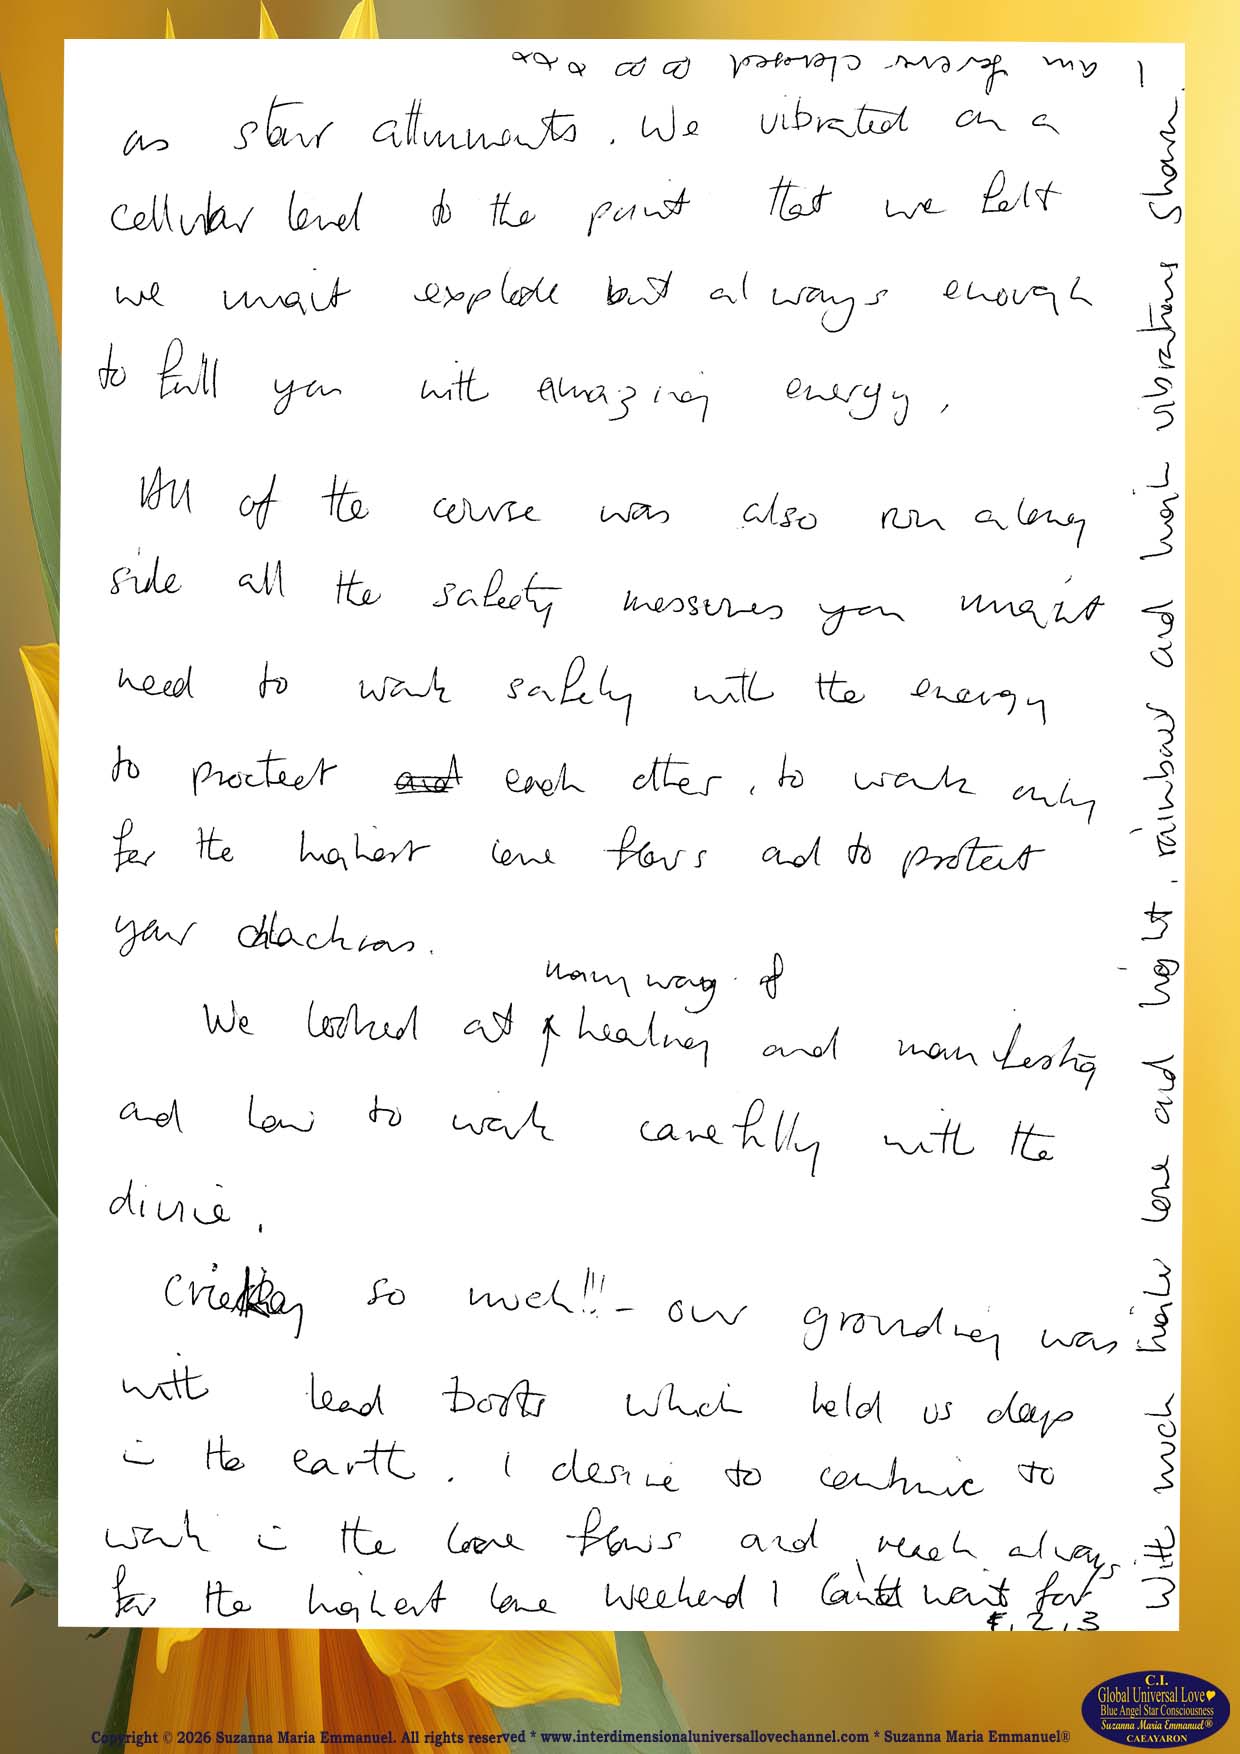 as star attunments. We vibrated on a
cellular level to the point that we felt
we might explode but always enough
to full you with amazing energy.
All of the course was also run along
side all the safety messures you might
need to work safely with the energy
to proctect and each other, to work only
for the highest love flows and to protect
your chackras.
many ways of
We looked at healing and manifesting
and how to work carefully with the
divine.
Crickey so much!!! - our grounding was
with lead boots which held us deep
in the earth. I desire to continue to
work in the love flows and reach always
for the highest love weekend I can't wait for
1, 2, 3
With much higher love and light, rainbows and high vibrations Shawn.
I am forever changed
C.I.
Global Universal Love
Blue Angel Star Consciousness
Suzanna Maria Emmanuel®
CAEAYARON
Copyright © 2026 Suzanna Maria Emmanuel. All rights reserved * www.interdimensionaluniversallovechannel.com * Suzanna Maria Emmanuel®